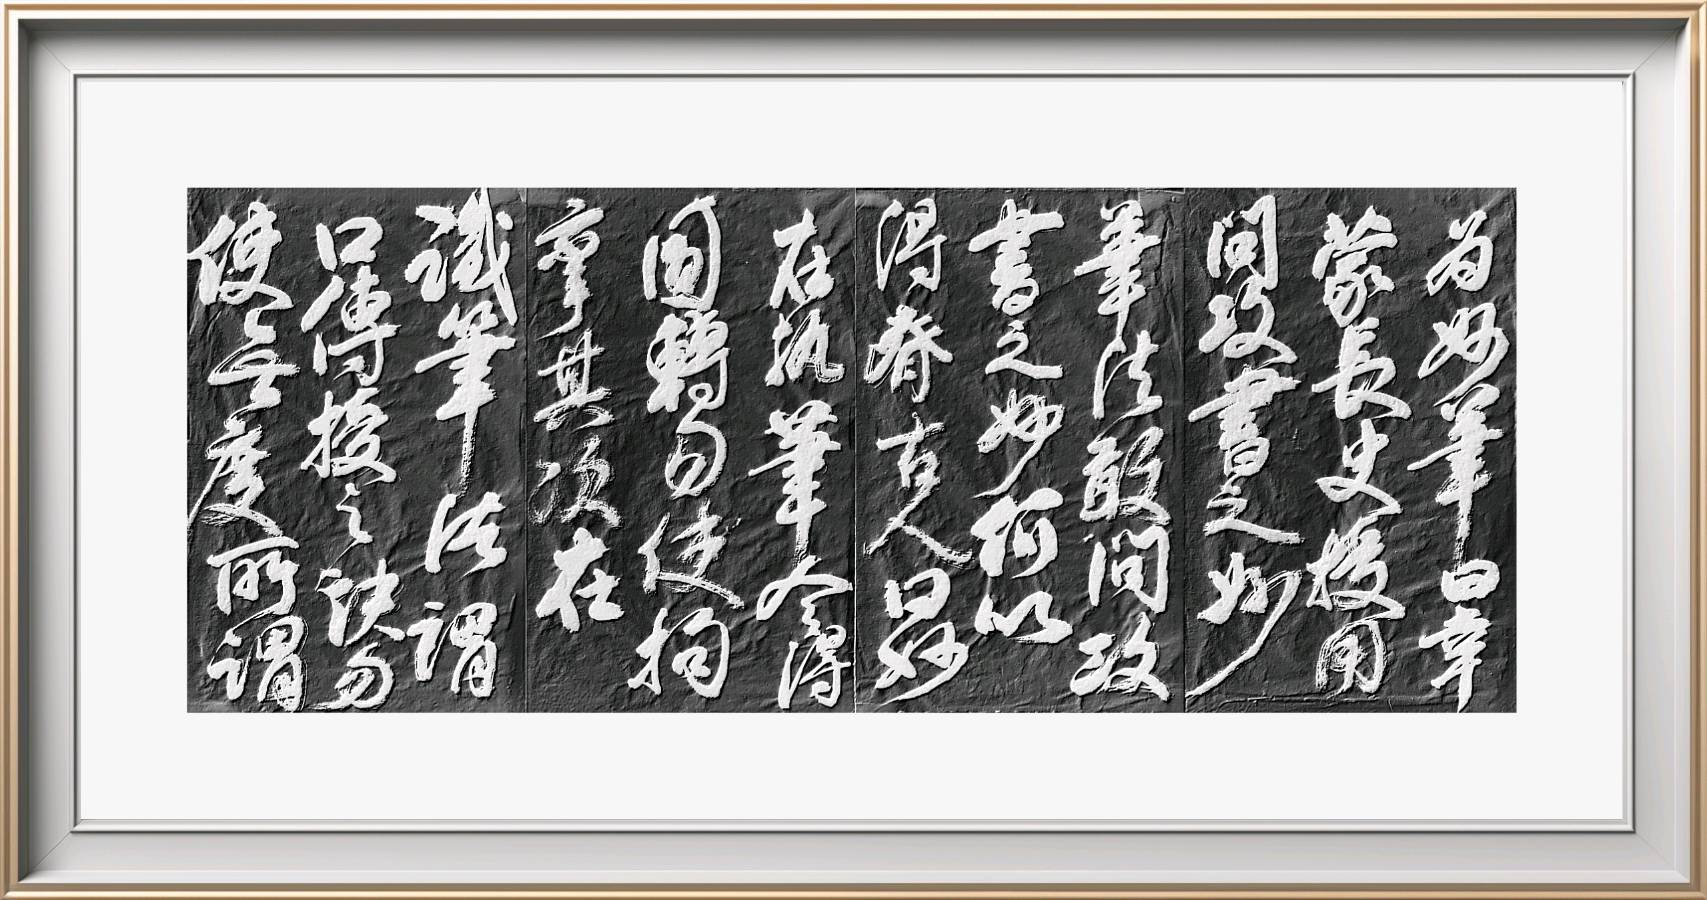 為妙筆曰幸
蒙長史授用
問攻書之妙
筆法敢問攻
書之妙何以
得齊古人曰妙
在執筆令得
圓轉勿使拘
攣其次在
識筆法謂
口傳授之訣勿
使無度所謂